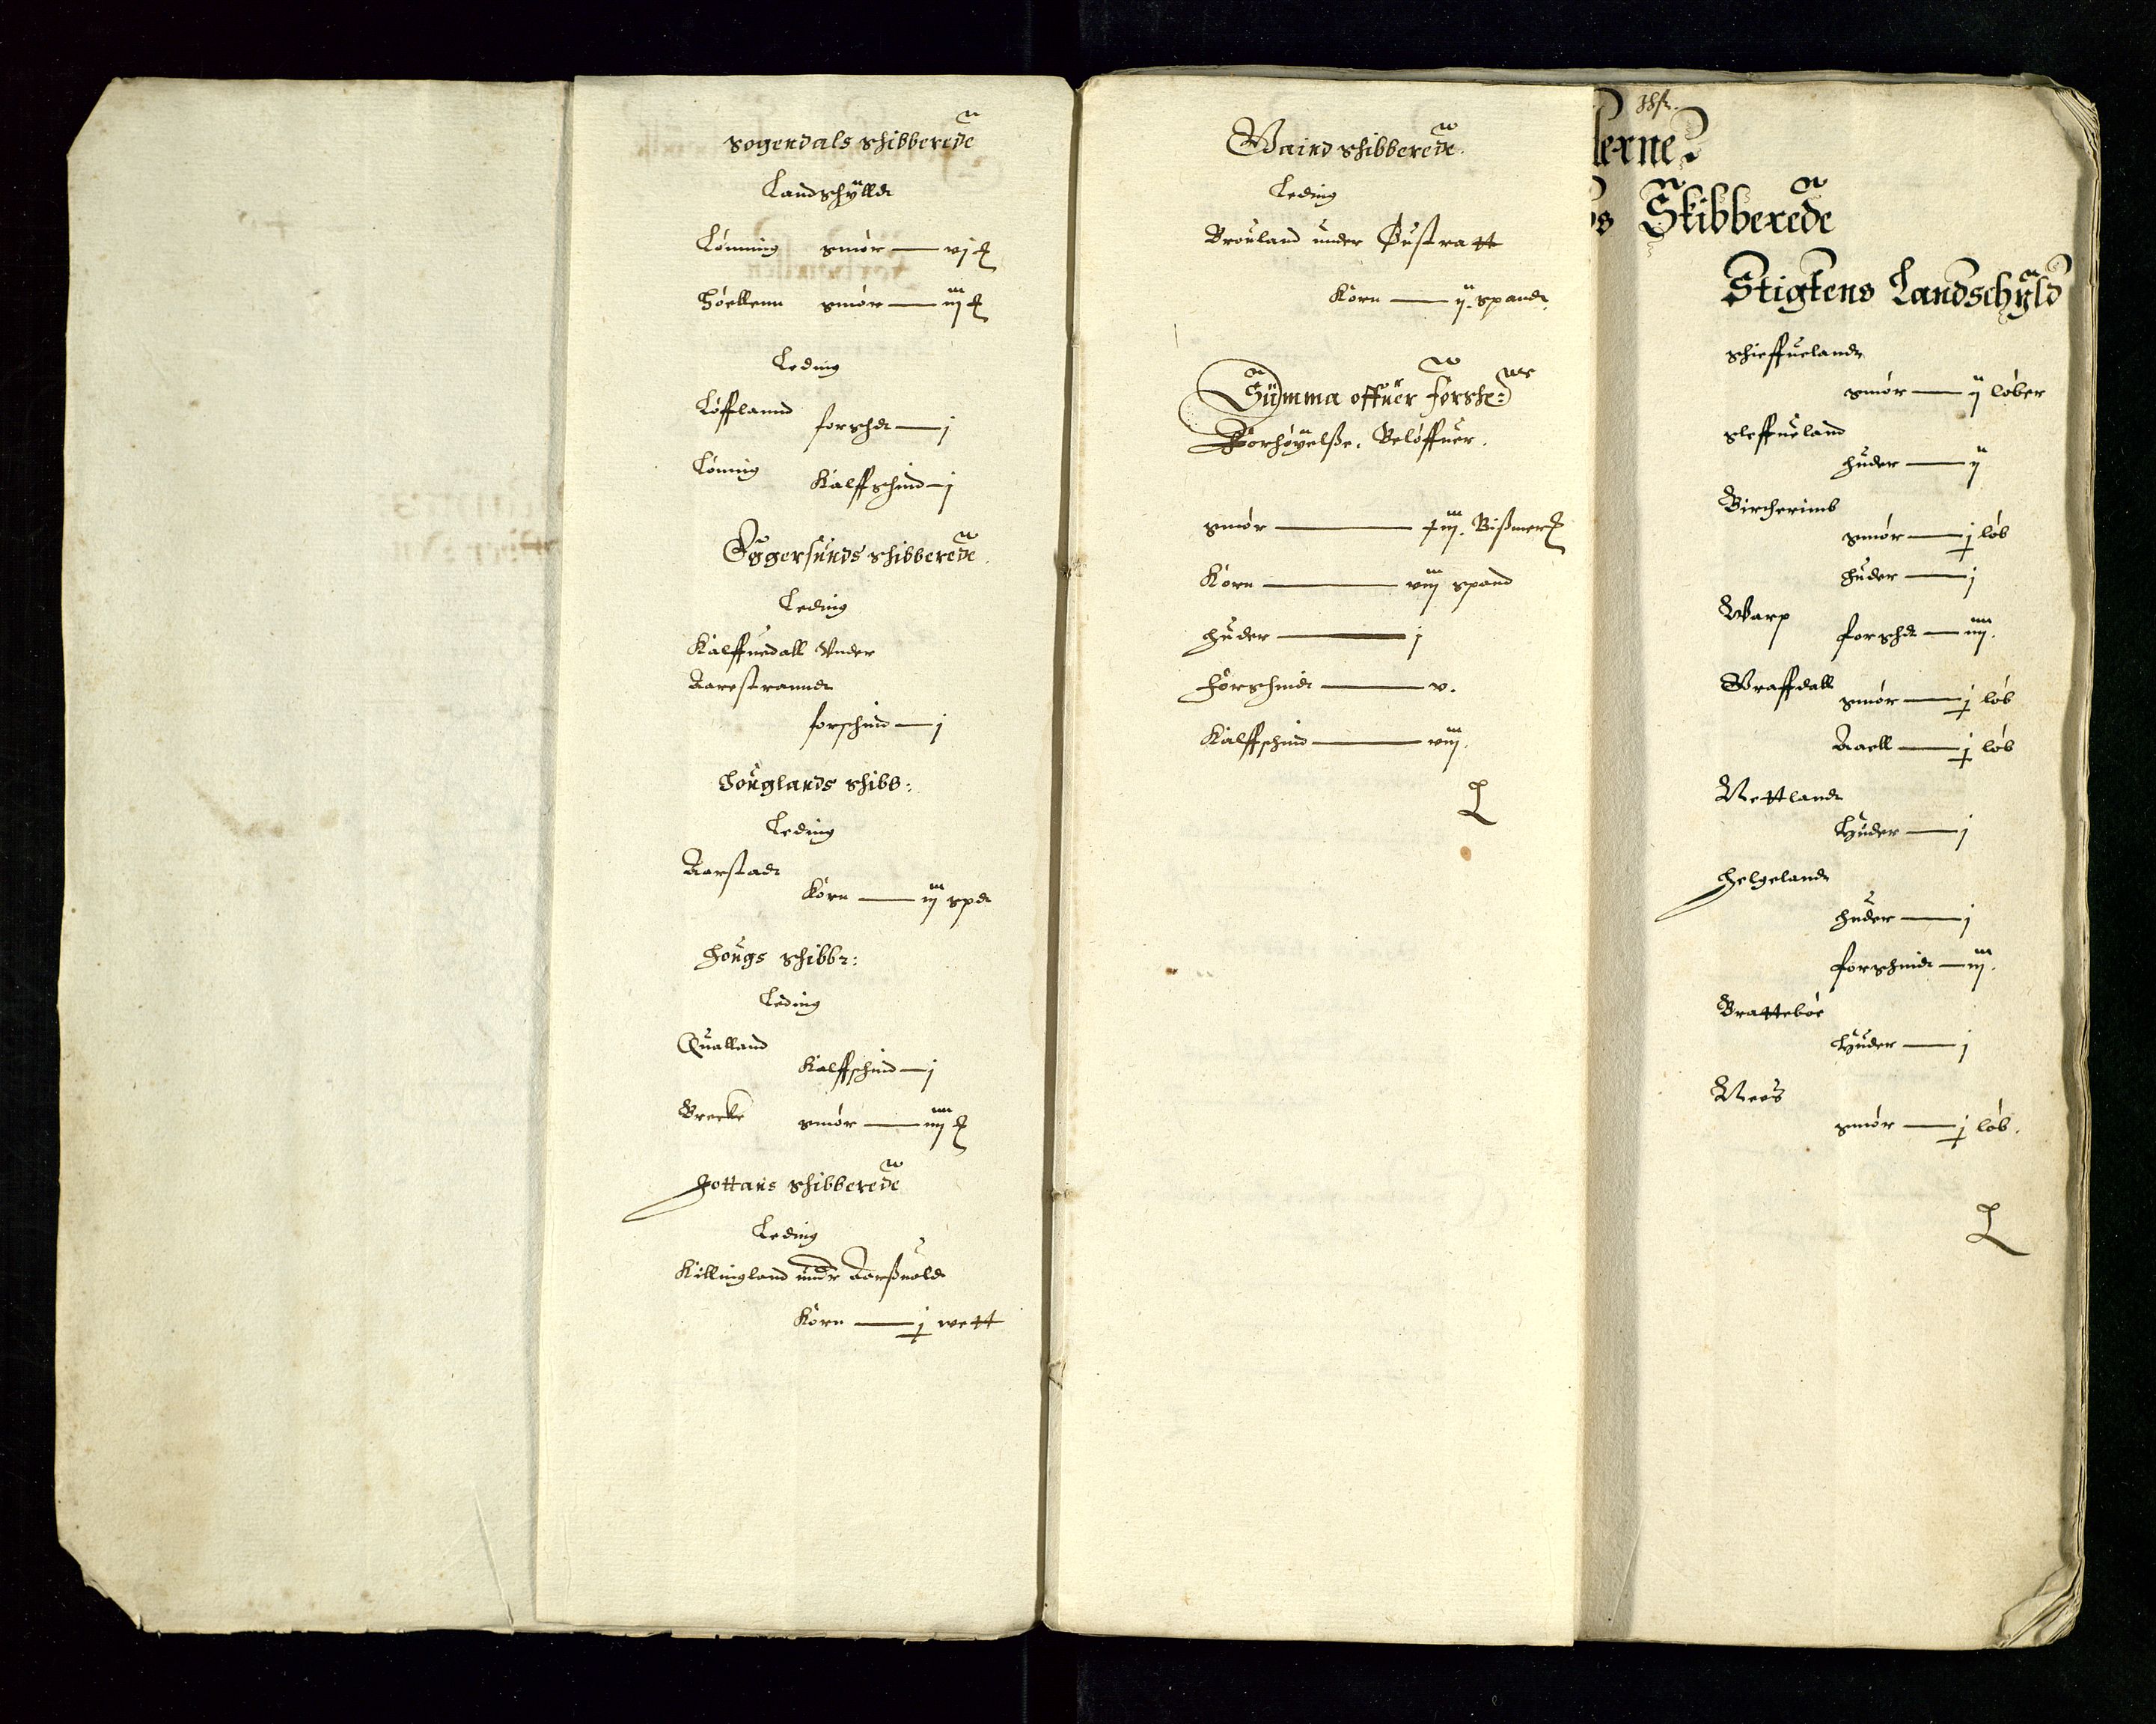 Sogendals Skibberede
Landschylld
Lønning smør — vj ℔
Høellenn smør — iij ℔
Leding
Løffland forschd — j
Lønnig Kalffschind — j
Eggersunds Skibberede
Leding
Kalffuedall Vnder
Aarestrannd
forschind — j
Houglands Skibb:
Leding
Aarstad
Korn — iij spd
Hougs Skibbr:
Leding
Qualland
Kalffschind — j
Brecke smør — iiij ℔
Hottans Skibberede
Leding
Killingland undr Aarßuold
Korn — j wett
Waind Skibberede
Leding
Brouland under Øustratt
Korn — ij spand
Summa offuer forske:
Forhøyelße, Beløffuer.
smør — iij Bißmer ℔
Korn — viij spand
Huder — j
Forschind — v.
Kalffschind — viij.
lerne
Skibberede
Stigtens Landschyld
Schieffueland
smør — ij løber
Sleffueland
huder — ij
Bircherimb
smør — j løb
huder — j
Warp forschd — iiij.
Graffdall smør — j løb
Aaell — j løb
Nettland
Huder — j
Helgeland
huder — j
forschind — iij.
Brattebøe
Huder — j
Nees
smør — j løb.